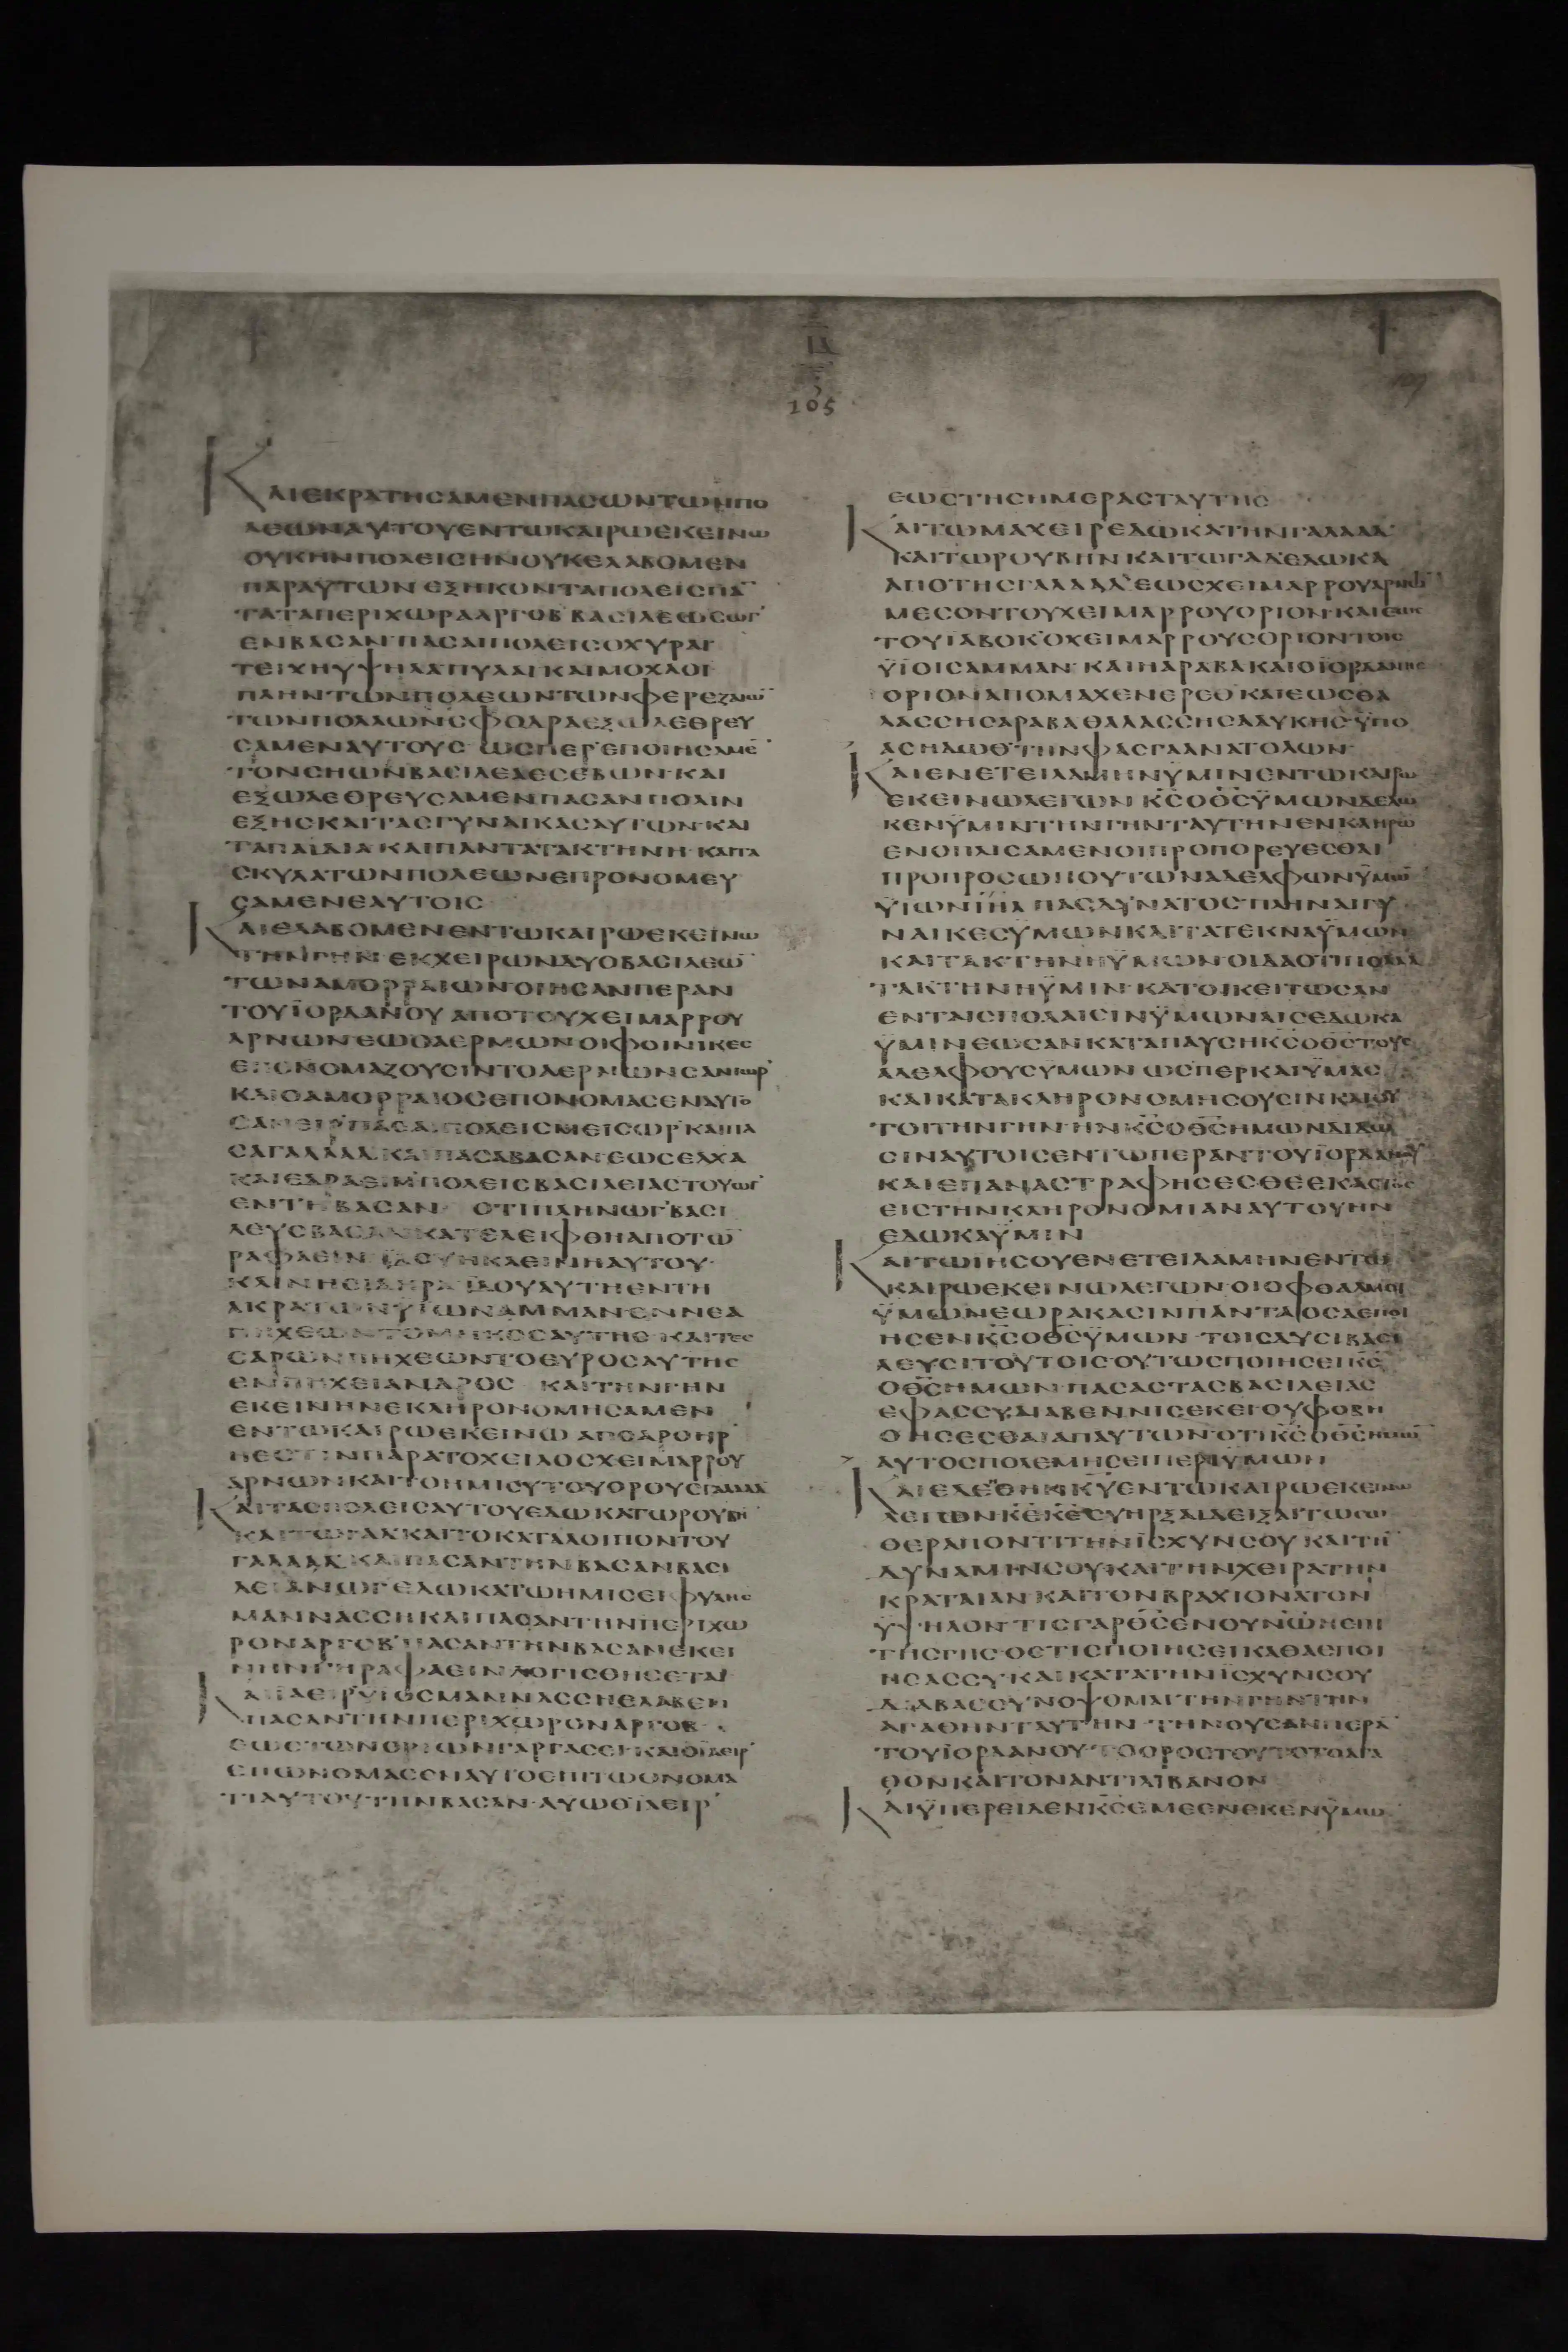 105
ΚΑΙΕΚΡΑΤΗСΑΜΕΝΠΑСΩΝΤΩΝΠΟ
ΛΕΩΝΑΥΤΟΥΕΝΤΩΚΑΙΡΩΕΚΕΙΝΩ
ΟΥΚΗΝΠΟΛΕΙСΗΝΟΥΚΕΛΑΒΟΜΕΝ
ΠΑΡΑΥΤΩΝΕΞΗΚΟΝΤΑΠΟΛΕΙСΠΑ¯
ΤΑΤΑΠΕΡΙΧΩΡΑΑΡΓΟΒΒΑСΙΛΕΩСΩΓ'
ΕΝΒΑСΑΝ·ΠΑСΑΙΠΟΛΕΙСΟΧΥΡΑΙ
ΤΕΙΧΗΥΨΗΛΑΠΥΛΑΙΚΑΙΜΟΧΛΟΙ
ΠΛΗΝΤΩΝΠΟΛΕΩΝΤΩΝΦΕΡΕΖΑΙΩ¯
ΤΩΝΠΟΛΛΩΝСΦΟΔΡΑΕΞΩΛΕΘΡΕΥ
СΑΜΕΝΑΥΤΟΥС·ΩСΠΕΡΕΠΟΙΗСΑΜΕ¯
ΤΟΝСΗΩΝΒΑСΙΛΕΑΕСΕΒΩΝ·ΚΑΙ
ΕΞΩΛΕΘΡΕΥСΑΜΕΝΠΑСΑΝΠΟΛΙΝ
ΕΞΗСΚΑΙΤΑСΓΥΝΑΙΚΑСΑΥΤΩΝ·ΚΑΙ
ΤΑΠΑΙΔΙΑΚΑΙΠΑΝΤΑΤΑΚΤΗΝΗ·ΚΑΙΤΑ
СΚΥΛΑΤΩΝΠΟΛΕΩΝΕΠΡΟΝΟΜΕΥ
СΑΜΕΝΕΑΥΤΟΙС
ΚΑΙΕΛΑΒΟΜΕΝΕΝΤΩΚΑΙΡΩΕΚΕΙΝΩ
ΤΗΝΓΗΝΕΚΧΕΙΡΩΝΔΥΟΒΑСΙΛΕΩ¯
ΤΩΝΑΜΟΡΡΑΙΩΝΟΙΗСΑΝΠΕΡΑΝ
ΤΟΥΪΟΡΔΑΝΟΥΑΠΟΤΟΥΧΕΙΜΑΡΡΟΥ
ΑΡΝΩΝΕΩСΑΕΡΜΩΝΟΙΦΟΙΝΙΚΕС
ΕΠΟΝΟΜΑΖΟΥСΙΝΤΟΑΕΡΜΩΝСΑΝΙΩΡ'
ΚΑΙΟΑΜΟΡΡΑΙΟСΕΠΟΝΟΜΑСΕΝΑΥΤΟ
СΑΝΕΙΡ'ΠΑСΑΙΠΟΛΕΙСΜΕΙСΩΡ'ΚΑΙΠΑ
СΑΓΑΛΑΑΔ'ΚΑΙΠΑСΑΒΑСΑΝ·ΕΩСΕΛΧΑ
ΚΑΙΕΔΡΑΕΙΜ'ΠΟΛΕΙСΒΑСΙΛΕΙΑСΤΟΥΩΓ'
ΕΝΤΗΒΑСΑΝ· ΟΤΙΠΛΗΝΩΓ'ΒΑСΙ
ΛΕΥСΒΑСΑΝΚΑΤΕΛΕΙΦΘΗΑΠΟΤΩ¯
ΡΑΦΑΕΙΝ·ΙΔΟΥΗΚΛΕΙΝΗΑΥΤΟΥ·
ΚΛΙΝΗСΙΔΗΡΑ·ΙΔΟΥΑΥΤΗΕΝΤΗ
ΑΚΡΑΤΩΝΥΙΩΝΑΜΜΑΝΕΝΝΕΑ
ΠΗΧΕΩΝΤΟΜΗΚΟСΑΥΤΗС·ΚΑΙΤΕС
СΑΡΩΝΠΗΧΕΩΝΤΟΕΥΡΟСΑΥΤΗС
ΕΝΠΗΧΕΙΑΝΔΡΟС ΚΑΙΤΗΝΓΗΝ
ΕΚΕΙΝΗΝΕΚΛΗΡΟΝΟΜΗСΑΜΕΝ
ΕΝΤΩΚΑΙΡΩΕΚΕΙΝΩΑΠΟΑΡΟΗΡ'
ΗΕСΤΙΝΠΑΡΑΤΟΧΕΙΛΟСΧΕΙΜΑΡΡΟΥ
ΑΡΝΩΝ·ΚΑΙΤΟΗΜΙСΥΤΟΥΟΡΟΥСΓΑΛΑΑΔ
ΚΑΙΤΑСΠΟΛΕΙСΑΥΤΟΥΕΔΩΚΑΤΩΡΟΥΒΗ¯
ΚΑΙΤΩΓΑΔ·ΚΑΙΤΟΚΑΤΑΛΟΙΠΟΝΤΟΥ
ΓΑΛΑΑΔ'ΚΑΙΠΑСΑΝΤΗΝΒΑСΑΝΒΑСΙ
ΛΕΙΑΝΩΓ'ΕΔΩΚΑΤΩΗΜΙСΕΙΦΥΛΗС
ΜΑΝΝΑССΗΚΑΙΠΑСΑΝΤΗΝΠΕΡΙΧΩ
ΡΟΝΑΡΓΟΒ'ΠΑСΑΝΤΗΝΒΑСΑΝΕΚΕΙ
ΝΗΝΓΗΡΑΦΑΕΙΝΛΟΓΙСΘΗСΕΤΑΙ
ΚΑΙΙΑΕΙΡ'ΥΙΟСΜΑΝΝΑССΗΕΛΑΒΕΝ
ΠΑСΑΝΤΗΝΠΕΡΙΧΩΡΟΝΑΡΓΟΒ·
ΕΩСΤΩΝΟΡΙΩΝΓΑΡΓΑСΕΙ·ΚΑΙΟΪΑΕΙΡ'
ΕΠΩΝΟΜΑСΕΝΑΥΤΟΕΠΙΤΩΟΝΟΜΑ
ΤΙΑΥΤΟΥ·ΤΗΝΒΑСΑΝ·ΑΥΩΘΪΑΕΙΡ'
ΕΩСΤΗСΗΜΕΡΑСΤΑΥΤΗС
ΚΑΙΤΩΜΑΧΕΙΡΕΔΩΚΑΤΗΝΓΑΛΑΑΔ'
ΚΑΙΤΩΡΟΥΒΗΝΚΑΙΤΩΓΑΔ'ΕΔΩΚΑ
ΑΠΟΤΗСΓΑΛΑΑΔ'ΕΩСΧΕΙΜΑΡΡΟΥΑΡΝΩ¯
ΜΕСΟΝΤΟΥΧΕΙΜΑΡΡΟΥΟΡΙΟΝ·ΚΑΙΕΩС
ΤΟΥΙΑΒΟΚ'ΟΧΕΙΜΑΡΡΟΥСΟΡΙΟΝΤΟΙС
ΫΪΟΙСΑΜΜΑΝ·ΚΑΙΗΑΡΑΒΑΚΑΙΟΪΟΡΔΑΝΗС
ΟΡΙΟΝΑΠΟΜΑΧΕΝΕΡΕΘ'ΚΑΙΕΩСΘΑ
ΛΑССΗСΑΡΑΒΑΘΑΛΑССΗСΑΛΥΚΗС·ΫΠΟ
ΑСΗΔΩΘ'ΤΗΝΦΑСΓΑΑΝΑΤΟΛΩΝ·
ΚΑΙΕΝΕΤΕΙΛΑΜΗΝΫΜΙΝΕΝΤΩΚΑΙΡΩ
ΕΚΕΙΝΩΛΕΓΩΝΚ̅С̅ΟΘ̅С̅ΫΜΩΝΔΕΔΩ
ΚΕΝΫΜΙΝΤΗΝΓΗΝΤΑΥΤΗΝΕΝΚΛΗΡΩ
ΕΝΟΠΛΙСΑΜΕΝΟΙΠΡΟΠΟΡΕΥΕСΘΑΙ
ΠΡΟΠΡΟСΩΠΟΥΤΩΝΑΔΕΛΦΩΝΫΜΩ¯
ΫΙΩΝΙ̅Η̅Λ̅ΠΑСΔΥΝΑΤΟС·ΠΛΗΝΑΙΓΥ
ΝΑΙΚΕСΥΜΩΝΚΑΙΤΑΤΕΚΝΑΫΜΩΝ
ΚΑΙΤΑΚΤΗΝΗΫΜΩΝΟΙΔΑΟΤΙΠΟΛΛΑ
ΤΑΚΤΗΝΗΫΜΙΝ·ΚΑΤΟΙΚΕΙΤΩСΑΝ
ΕΝΤΑΙСΠΟΛΑΙСΙΝΫΜΩΝΑΙСΕΔΩΚΑ
ΫΜΙΝΕΩСΑΝΚΑΤΑΠΑΥСΗΚ̅С̅ΟΘ̅С̅ΤΟΥС
ΑΔΕΛΦΟΥСΥΜΩΝΩСΠΕΡΚΑΙΫΜΑС
ΚΑΙΚΑΤΑΚΛΗΡΟΝΟΜΗСΟΥСΙΝΚΑΙΟΥ
ΤΟΙΤΗΝΓΗΝΗΝΚ̅С̅ΟΘ̅С̅ΗΜΩΝΔΙΔΩ
СΙΝΑΥΤΟΙСΕΝΤΩΠΕΡΑΝΤΟΥΪΟΡΔΑΝΟΥ
ΚΑΙΕΠΑΝΑСΤΡΑΦΗСΕСΘΕΕΚΑСΤΟС
ΕΙСΤΗΝΚΛΗΡΟΝΟΜΙΑΝΑΥΤΟΥΗΝ
ΕΔΩΚΑΫΜΙΝ
ΚΑΙΤΩΙΗСΟΥΕΝΕΤΕΙΛΑΜΗΝΕΝΤΩ
ΚΑΙΡΩΕΚΕΙΝΩΛΕΓΩΝ·ΟΙΟΦΘΑΛΜΟΙ
ΫΜΩΝΕΩΡΑΚΑСΙΝΠΑΝΤΑΟСΑΕΠΟΙ
ΗСΕΝΚ̅С̅ΟΘ̅С̅ΫΜΩΝ·ΤΟΙСΔΥСΙΒΑСΙ
ΛΕΥСΙΤΟΥΤΟΙС·ΟΥΤΩСΠΟΙΗСΕΙΚ̅С̅
ΟΘ̅С̅ΗΜΩΝ·ΠΑСΑСΤΑСΒΑСΙΛΕΙΑС
ΕΦΑССΥΔΙΑΒΕΝΝΙСΕΚΕΙΟΥΦΟΒΗ
ΘΗСΕСΘΑΙΑΠΑΥΤΩΝ·ΟΤΙΚ̅С̅ΟΘ̅С̅ΗΜΩ¯
ΑΥΤΟСΠΟΛΕΜΗСΕΙΠΕΡΙΫΜΩΝ
ΚΑΙΕΔΕΗΘΗΝΚ̅Υ̅ΕΝΤΩΚΑΙΡΩΕΚΕΙΝΩ
ΛΕΓΩΝΚ̅Ε̅Κ̅Ε̅СΥΗΡΞΑΙΔΕΙΞΑΙΤΩСΩ
ΘΕΡΑΠΟΝΤΙΤΗΝΪСΧΥΝСΟΥΚΑΙΤΗ¯
ΔΥΝΑΜΙΝСΟΥ·ΚΑΙΤΗΝΧΕΙΡΑΤΗΝ
ΚΡΑΤΑΙΑΝ·ΚΑΙΤΟΝΒΡΑΧΙΟΝΑΤΟΝ
ΫΨΗΛΟΝ·ΤΙСΓΑΡΘ̅С̅ΕΝΟΥΝΩΗΕΠΙ
ΤΗСΓΗС·ΟСΤΙСΠΟΙΗСΕΙΚΑΘΑΕΠΟΙ
ΗСΑССΥ·ΚΑΙΚΑΤΑΤΗΝΪСΧΥΝСΟΥ
ΔΙΑΒΑСΟΥΝΟΨΟΜΑΙΤΗΝΓΗΝΤΗΝ
ΑΓΑΘΗΝΤΑΥΤΗΝ·ΤΗΝΟΥСΑΝΠΕΡΑ¯
ΤΟΥΪΟΡΔΑΝΟΥ·ΤΟΟΡΟСΤΟΥΤΟΤΟΑΓΑ
ΘΟΝΚΑΙΤΟΝΑΝΤΙΛΙΒΑΝΟΝ
ΚΑΙΫΠΕΡΕΙΔΕΝΚ̅С̅ΕΜΕΕΝΕΚΕΝΫΜΩ¯